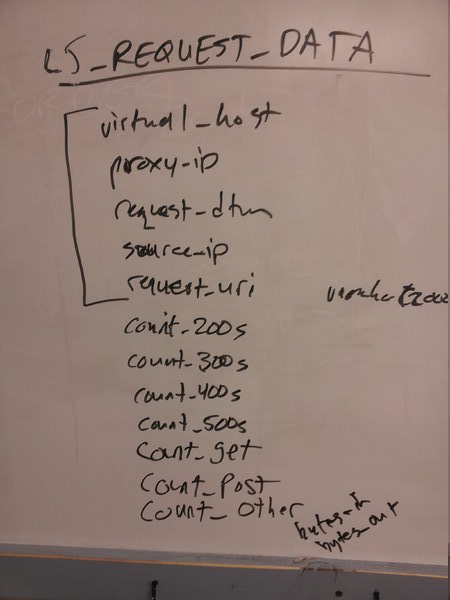 LS_REQUEST_DATA
virtual_host
proxy_ip
request_dtm
source_ip
request_uri
count_200s
count_300s
count_400s
count_500s
count_get
count_post
count_other
bytes_in
bytes_out